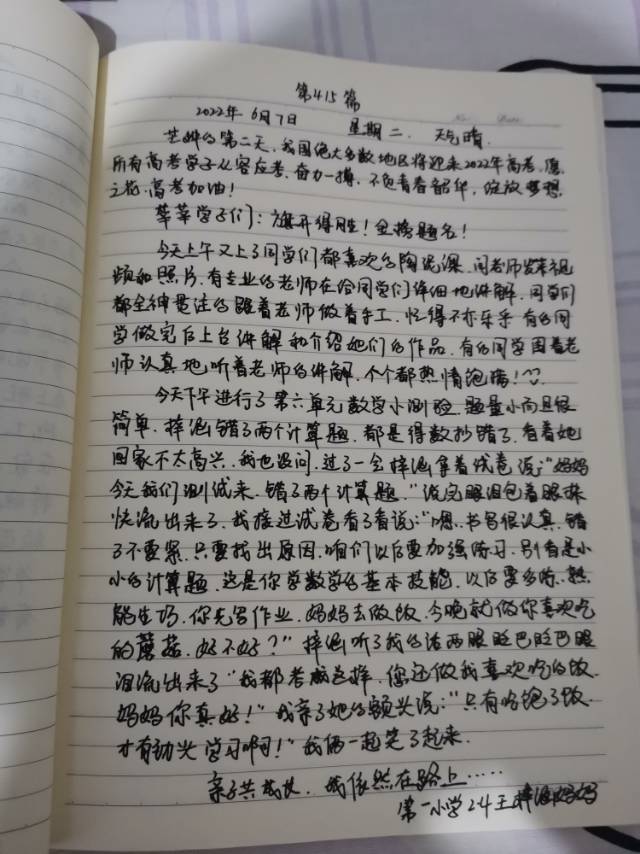 第415篇
2022年6月7日 星期二. 天气晴.
芒种的第二天，我国绝大多数地区将迎来2022年高考，愿
所有高考学子从容应考，奋力一搏，不负青春韶华，绽放梦想
之花，高考加油！
莘莘学子们：旗开得胜！金榜题名！
今天上午又上了同学们都喜欢的陶泥课，闫老师发来视
频和照片，有专业的老师在给同学们详细地讲解，同学们
都全神贯注的跟着老师做着手工，忙得不亦乐乎，有的同
学做完后上台讲解和介绍她们的作品，有的同学围着老
师认真地听着老师的讲解，个个都热情饱满！
今天下午进行了第六单元数学小测验，题量小而且很
简单，梓涵错了两个计算题，都是得数抄错了，看着她
回家不太高兴，我也没问，过了一会梓涵拿着试卷说：“妈妈
今天我们测试来，错了两个计算题，”说完眼泪包着眼珠
快流出来了，我接过试卷看了看说：“嗯，书写很认真，错
了不要紧，只要找出原因，咱们以后要加强练习，别看是小
小的计算题，这是你学数学的基本技能，以后要多练，熟
能生巧，你先写作业，妈妈去做饭，今晚就做你喜欢吃
的蘑菇，好不好？”梓涵听了我的话两眼眨巴眨巴眼
泪流出来了“我都考成这样，您还做我喜欢吃的饭，
妈妈你真好！”我亲了她的额头说：“只有吃饱了饭，
才有劲头学习啊！”我俩一起笑了起来.
亲子共成长，我依然在路上……
第一小学2.4王梓涵妈妈